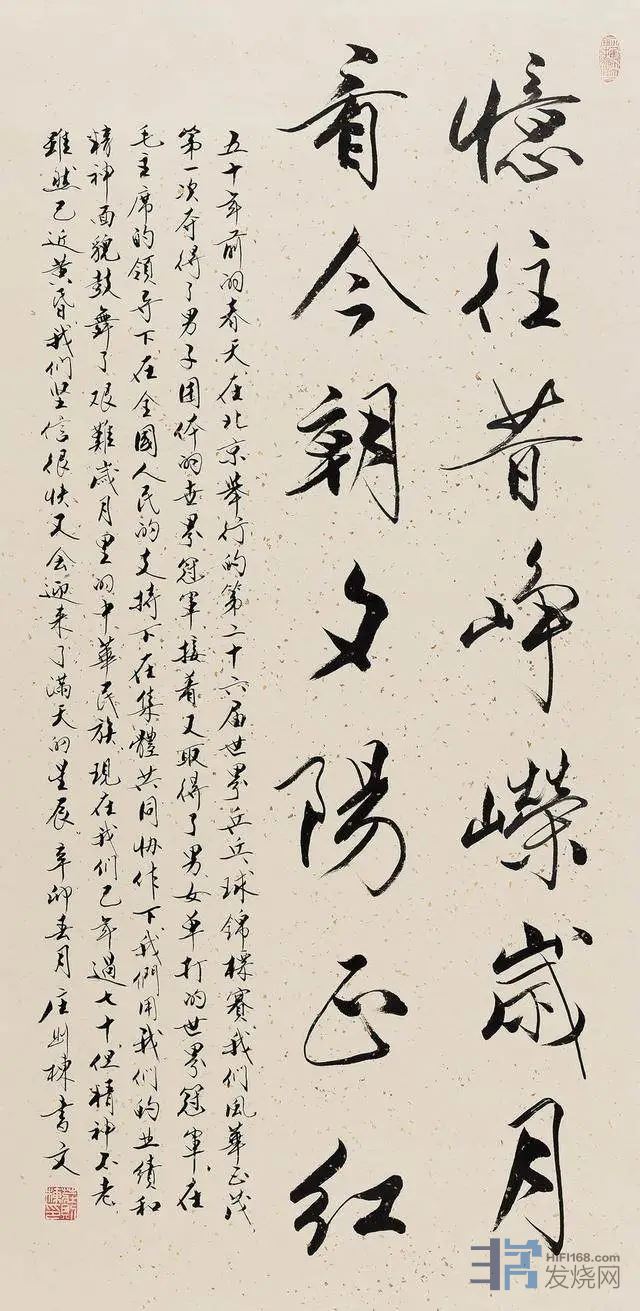 憶往昔崢嶸歲月
看今朝夕陽正红
五十年前的春天在北京举行的第二十六届世界乒乓球錦標賽我们风華正茂
第一次夺得了男子团体的世界冠軍接着又取得了男女单打的世界冠軍在
毛主席的領导下在全國人民的支持下在集體共同协作下我們用我們的业績和
精神面貌鼓舞了艰難歲月里的中華民族現在我们已年過七十但精神不老
雖然已近黄昏我们坚信很快又会迎来了滿天的星辰 辛卯春月 庄则棟書文
HIFI168.com
发烧网